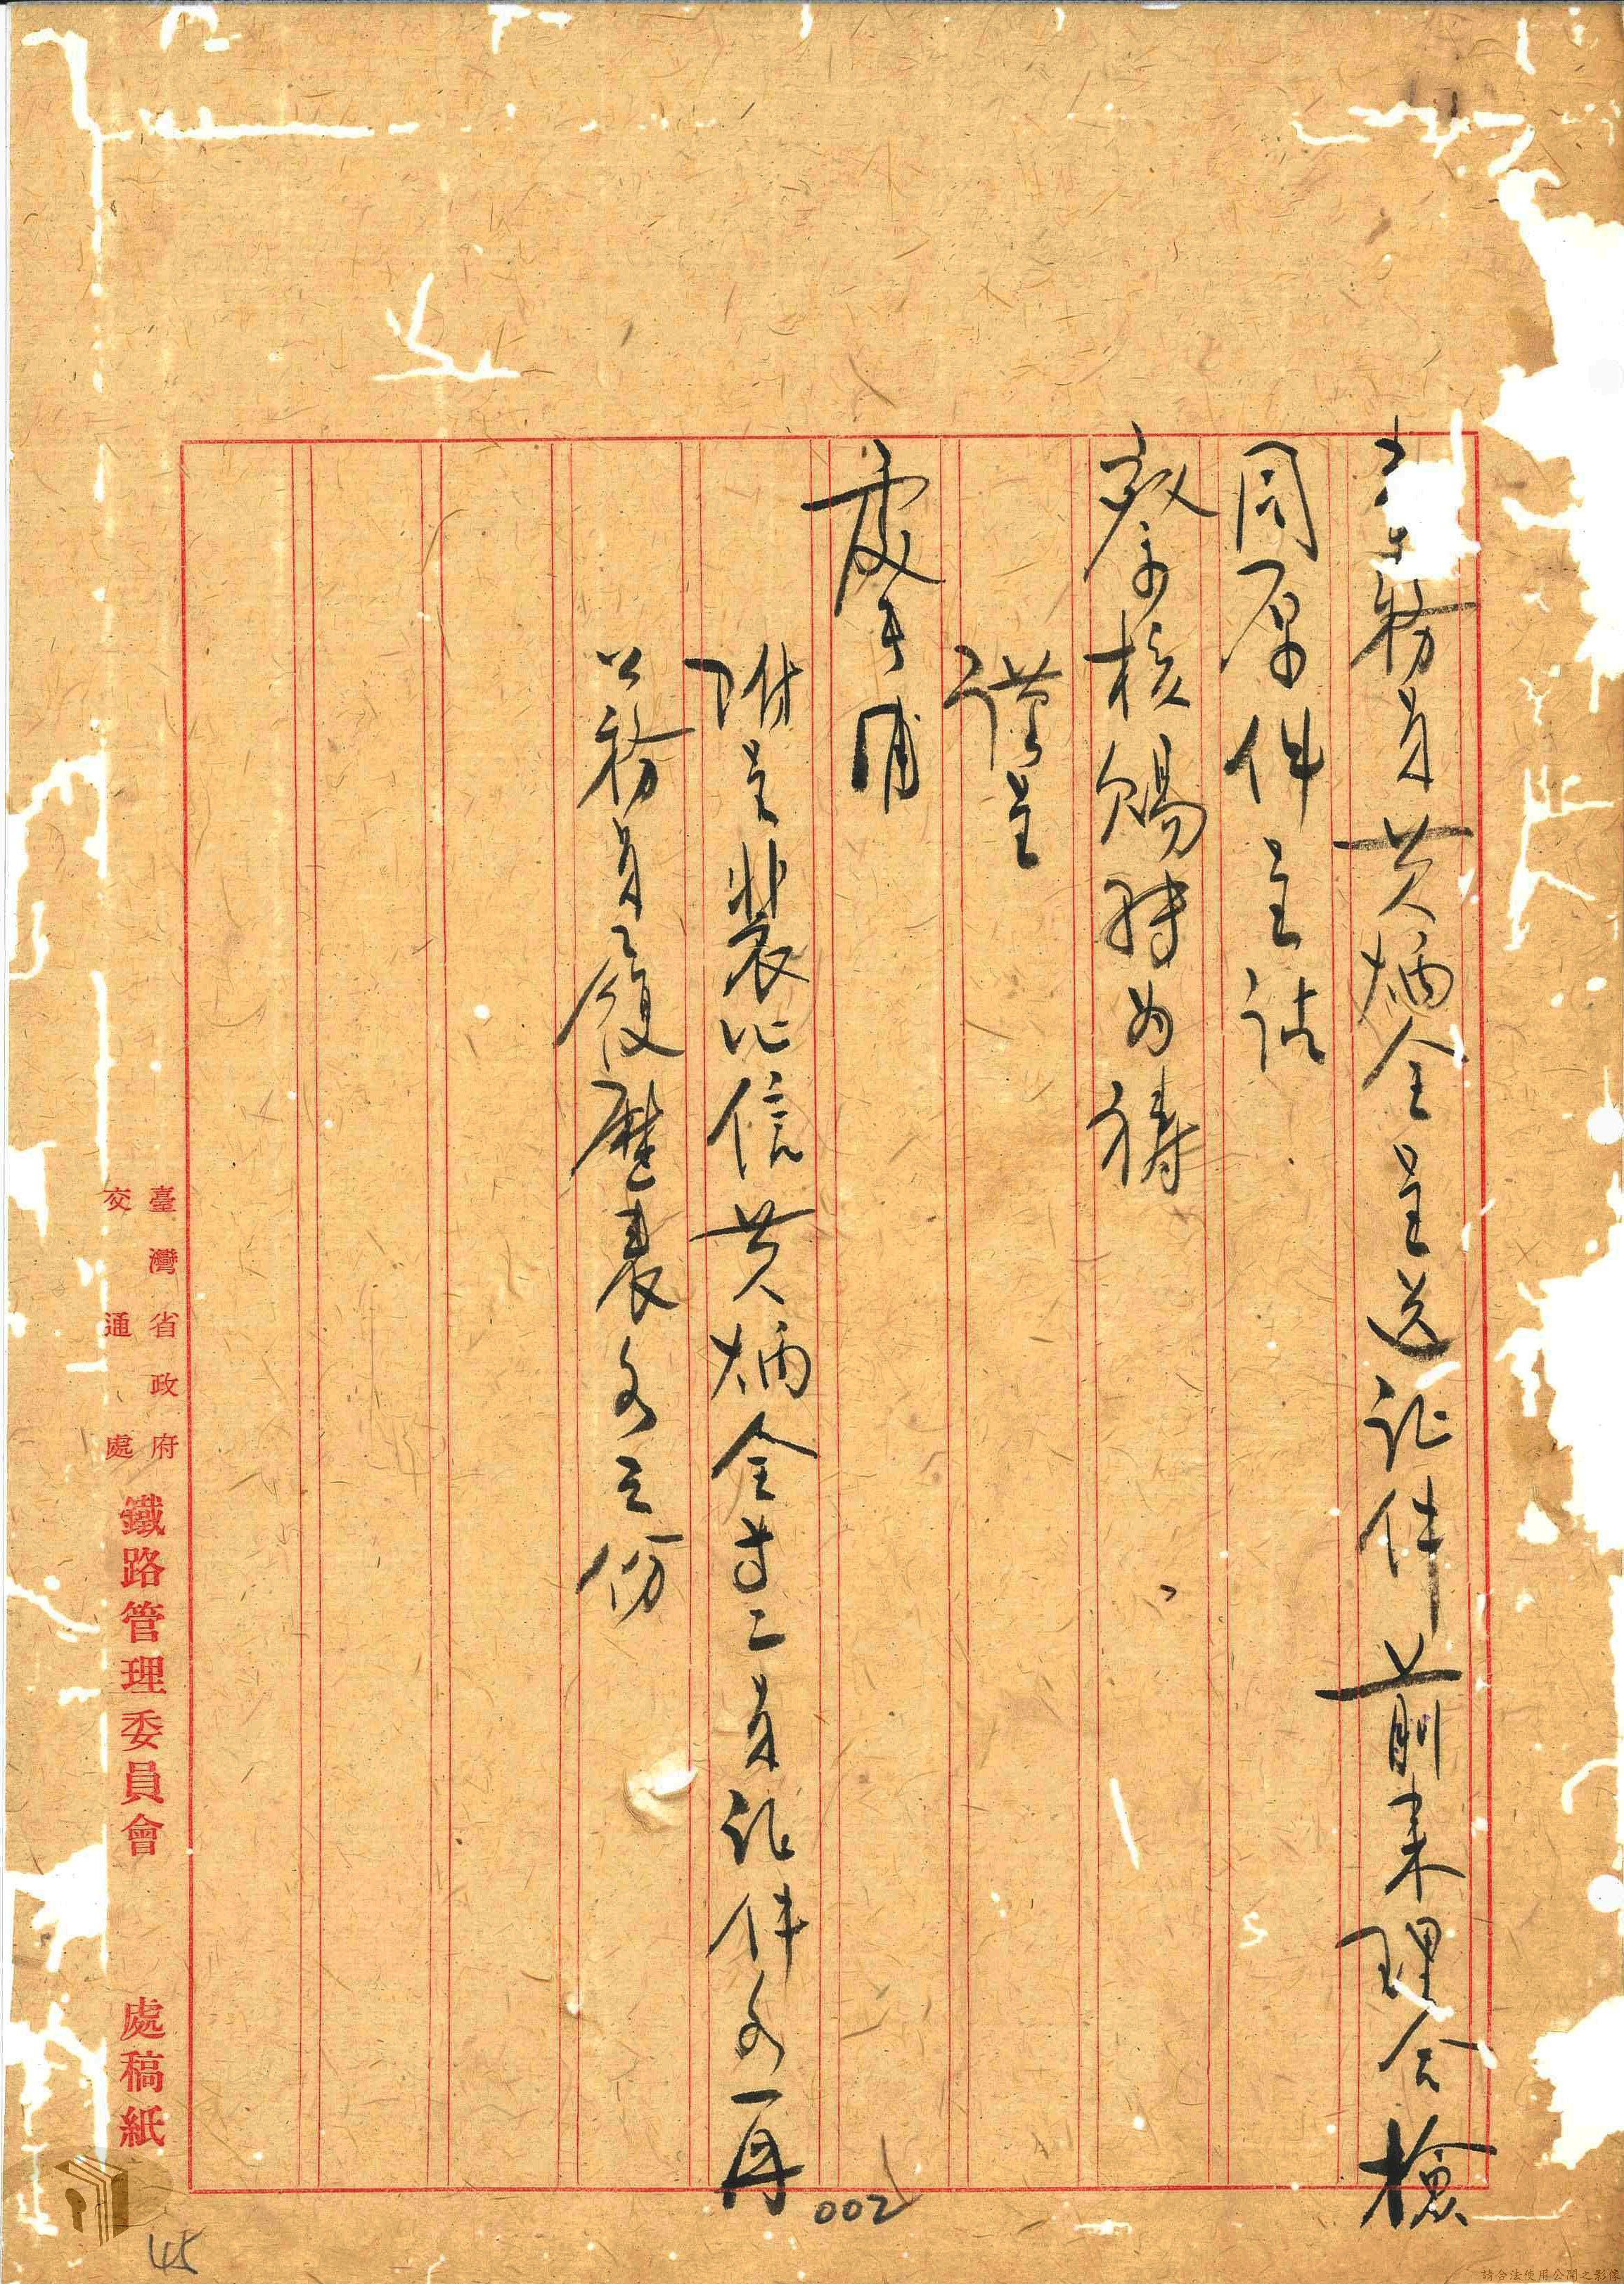 務員黃炳全呈送証件前来理合檢
同原件呈請
察核賜轉為禱
謹呈
處長
附呈裴化信黃炳全等二員証件各一冊
公務員履歷表各三份
臺灣省政府
交通處
鐵路管理委員會 處稿紙
002
45
請合法使用公開之影像